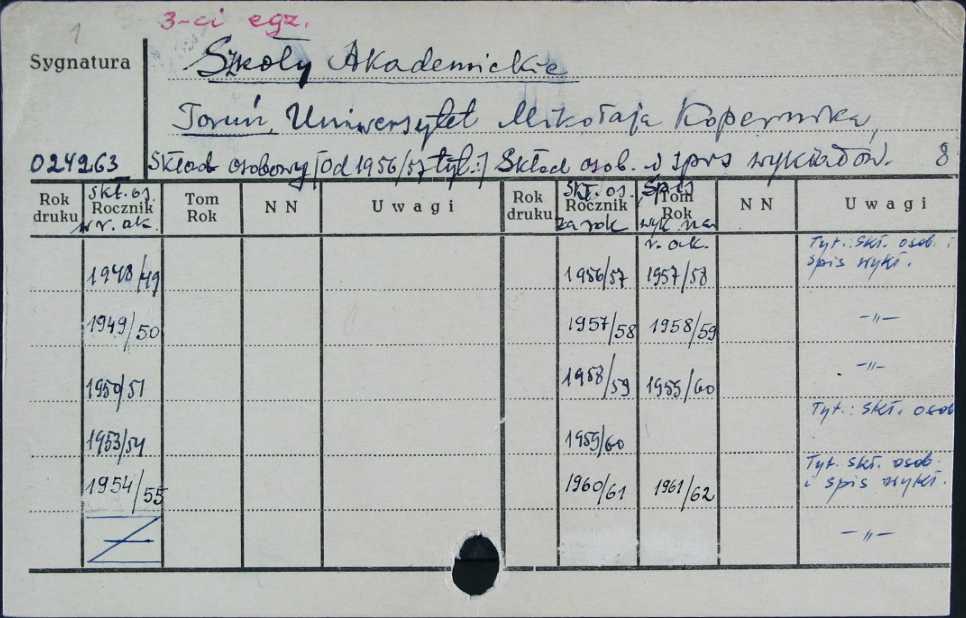 1 3-ci egz.
Sygnatura Szkoły Akademickie
Toruń, Uniwersytet Mikołaja Kopernika,
024263 Skład osobowy [Od 1956/57 tyt.:] Skład osob. i spis wykładów. 8
Rok druku Skł. os. Rocznik w r. ak. Tom Rok N N Uwagi Rok druku Skł. os. Rocznik za rok Spis Tom Rok wyk. na r. ak. N N Uwagi
1948/49 1956/57 1957/58 Tyt.: Skł. osob. i spis wykł.
1949/50 1957/58 1958/59 —〃—
1950/51 1958/59 1959/60 —〃—
1953/54 1959/60 Tyt.: Skł. osob
1954/55 1960/61 1961/62 Tyt. Skł. osob. i spis wykł.
—〃—